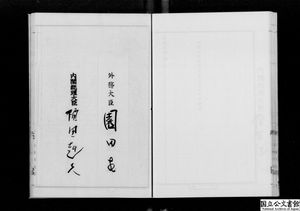 外務大臣
園田直
内閣総理大臣
福田赳夫
国立公文書館
National Archives of Japan